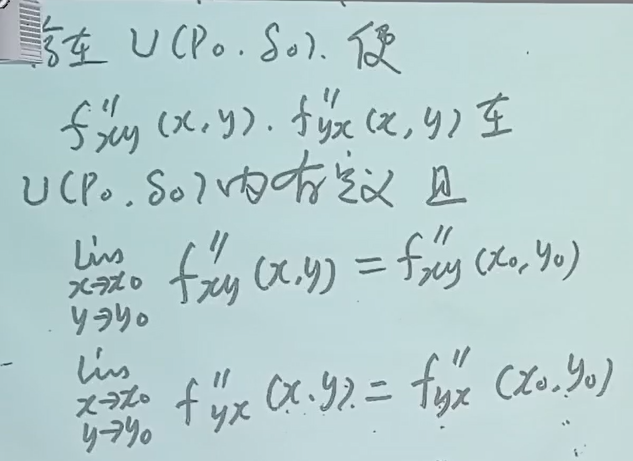 存在 U(P₀.δ₀). 使
f″xy (x,y). f″yx (x,y) 在
U(P₀.δ₀) 内有定义 且
lim x→x₀ y→y₀ f″xy (x,y) = f″xy (x₀,y₀)
lim x→x₀ y→y₀ f″yx (x.y) = f″yx (x₀.y₀)